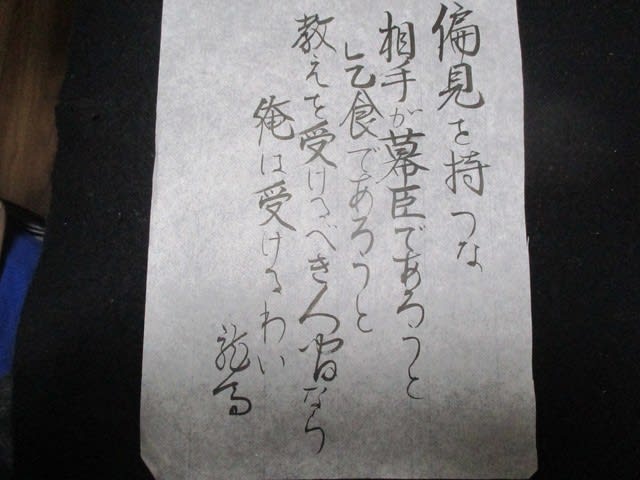 偏見を持つな
相手が幕臣であろうと
乞食であろうと
教えを受けるべき人間なら
俺は受けるわい
龍馬